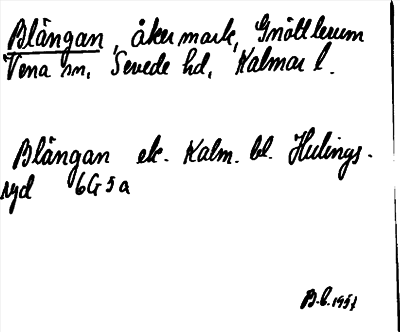 Blängan, åkermark, Gnöttlerum
Vena sn, Sevede hd, Kalmar l.
Blängan ek. Kalm. bl. Hulings-
ryd 6G 5a
B.C. 1951